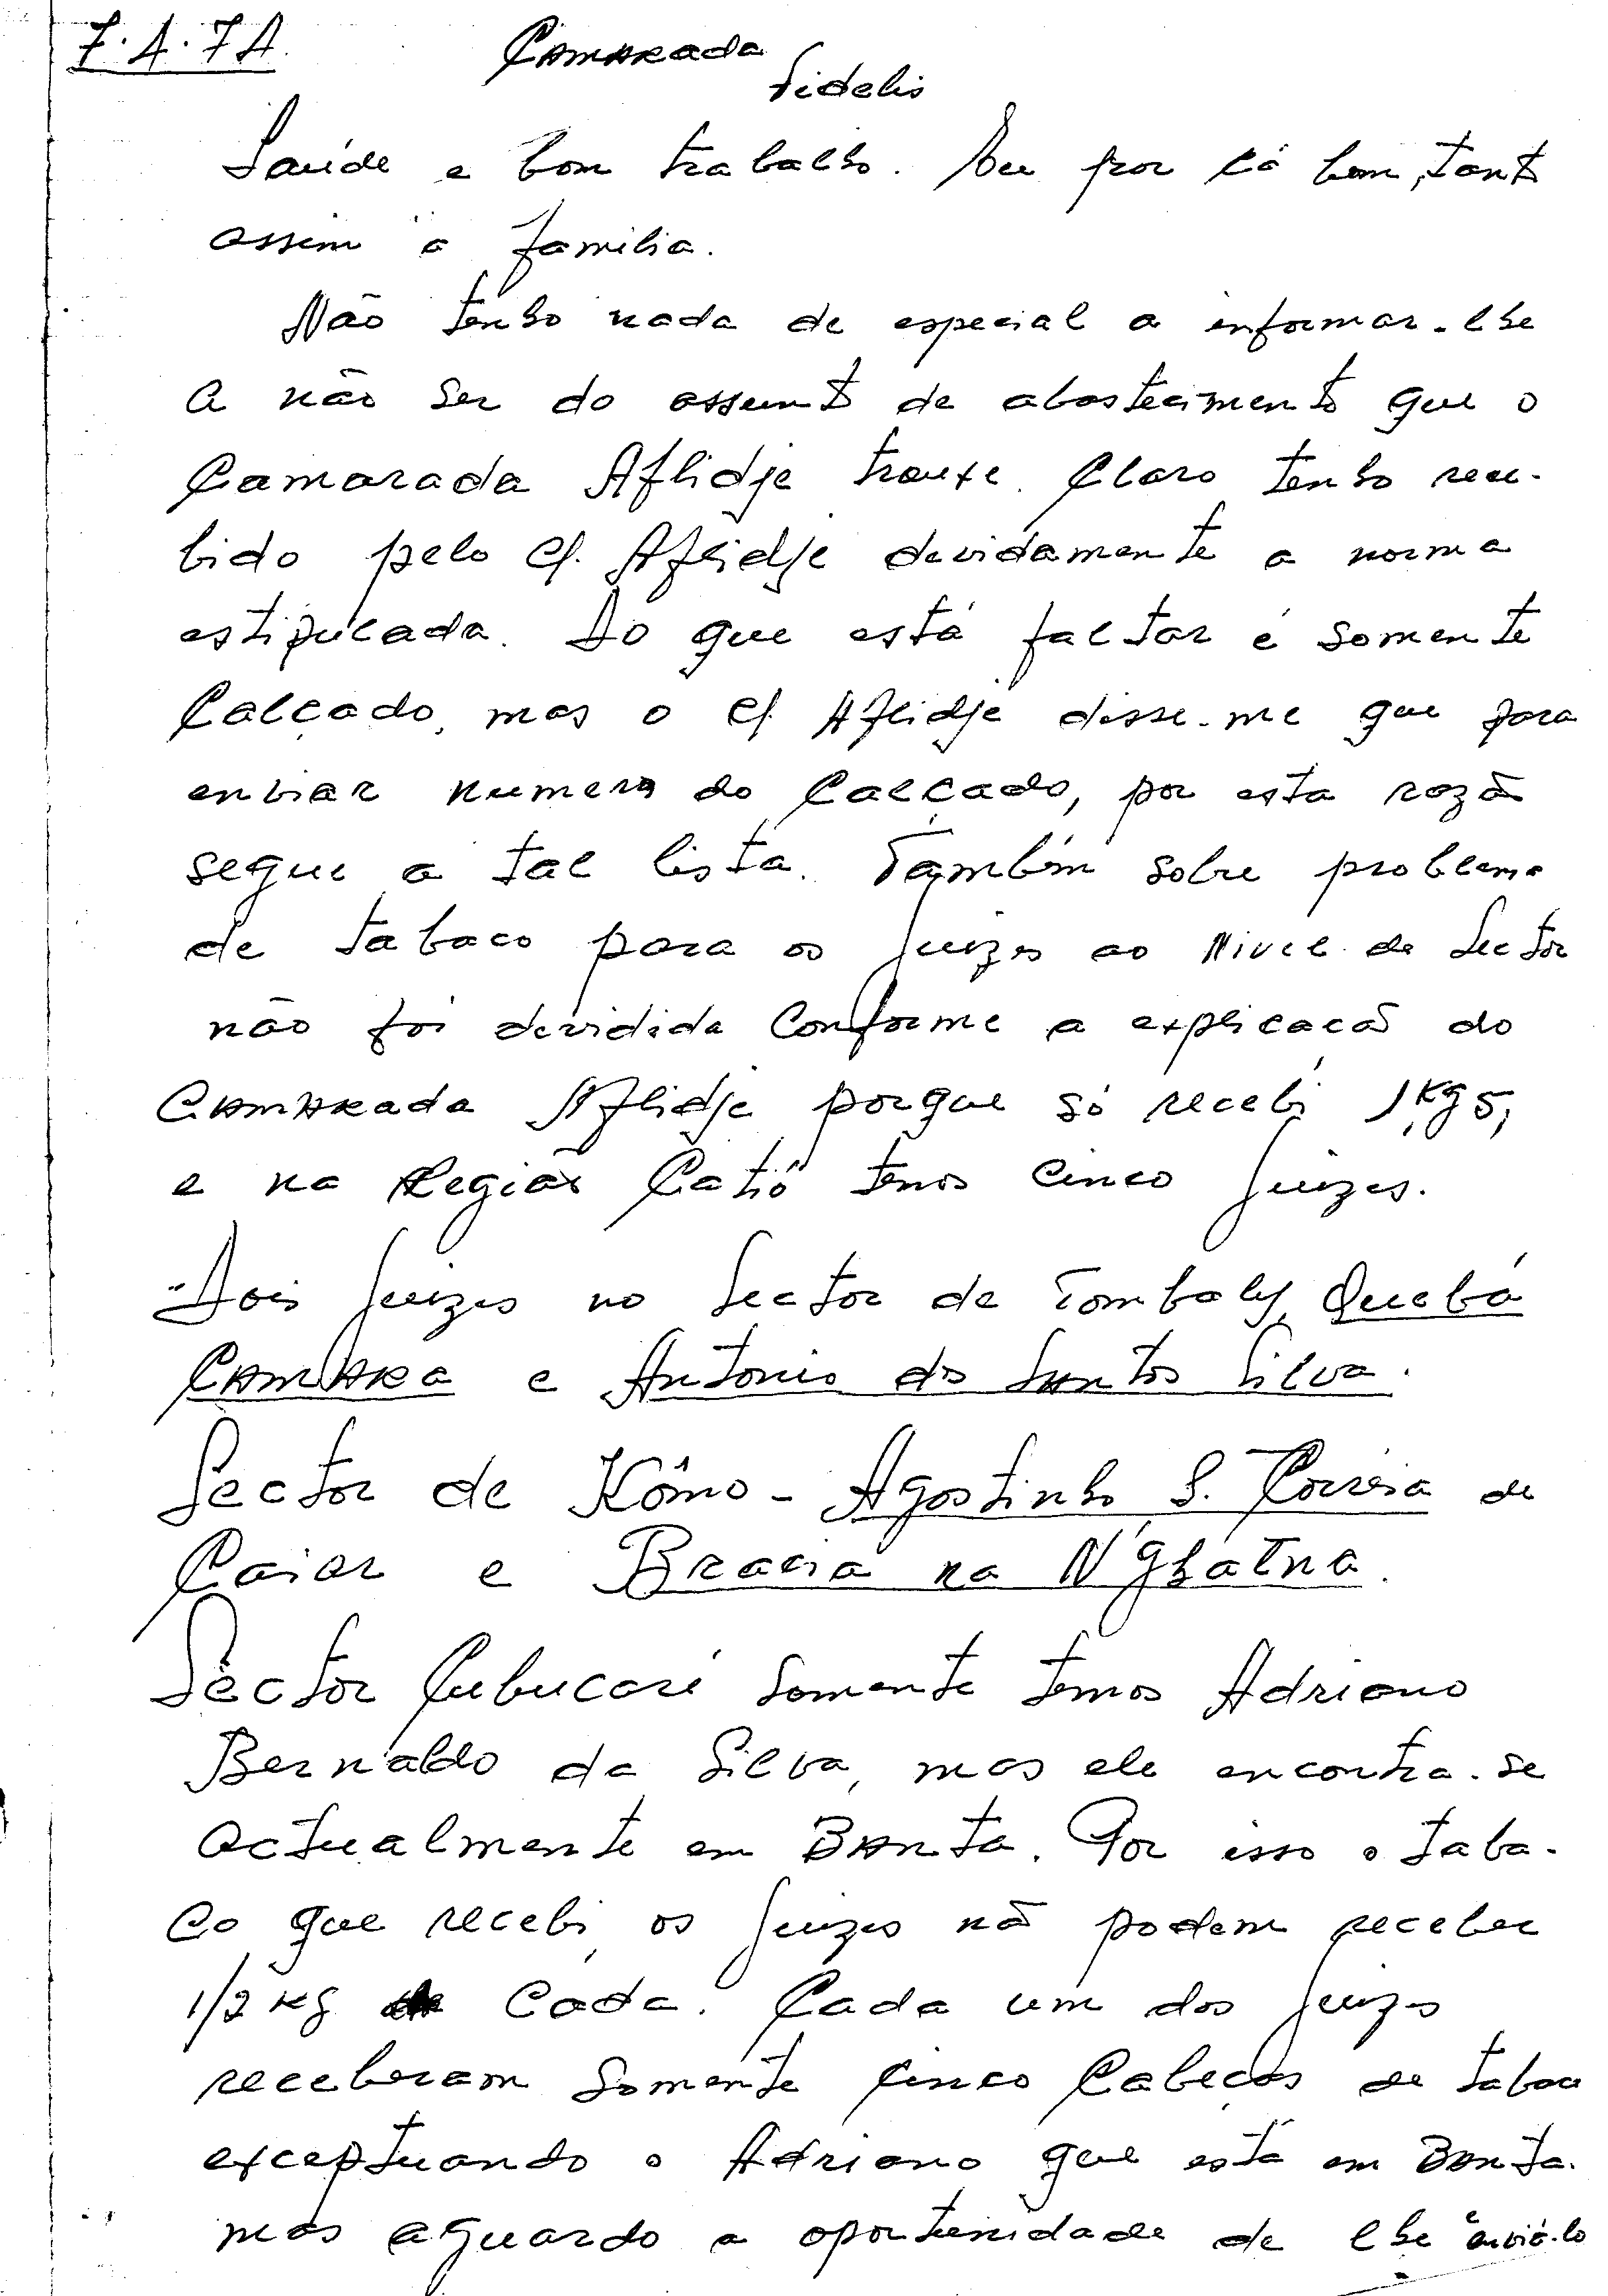 7.4.74.
Camarada
Fidelis
Saúde e bom trabalho. Eu por cá bem, tanto
assim a família.
Não tenho nada de especial a informar-lhe
a não ser do assunto de abastecimento que o
Camarada Aflidje trouxe. Claro tenho rece-
bido pelo C/. Aflidje devidamente a norma
estipulada. Ao que está faltar é somente
Calçado, mas o C/. Aflidje disse-me que para
enviar numero do Calçado, por esta razão
segue a tal lista. Também sobre problema
de tabaco para os juizes ao Nivel de Sector
não foi devidida Conforme a explicacão do
Camarada Aflidje porque só recebi 1kg5,
e na Região Catió temos cinco juizes.
Dois juizes no Sector de Tombaly, Quebá
Camara e Antonio dos Santos Silva.
Sector de Kômo - Agostinho S. Correia de
Caiar e Bracia na N'ghatna.
Sector Cubucaré somente temos Adriano
Bernaldo da Silva, mas ele encontra-se
actualmente em Banta. Por isso o taba-
co que recebi, os juizes não podem receber
1/2 kg cada. Cada um dos juizes
receberam somente cinco Cabeças de tabaco
exceptuando o Adriano que está em Banta.
mas aguardo a oportunidade de lhe enviá-lo